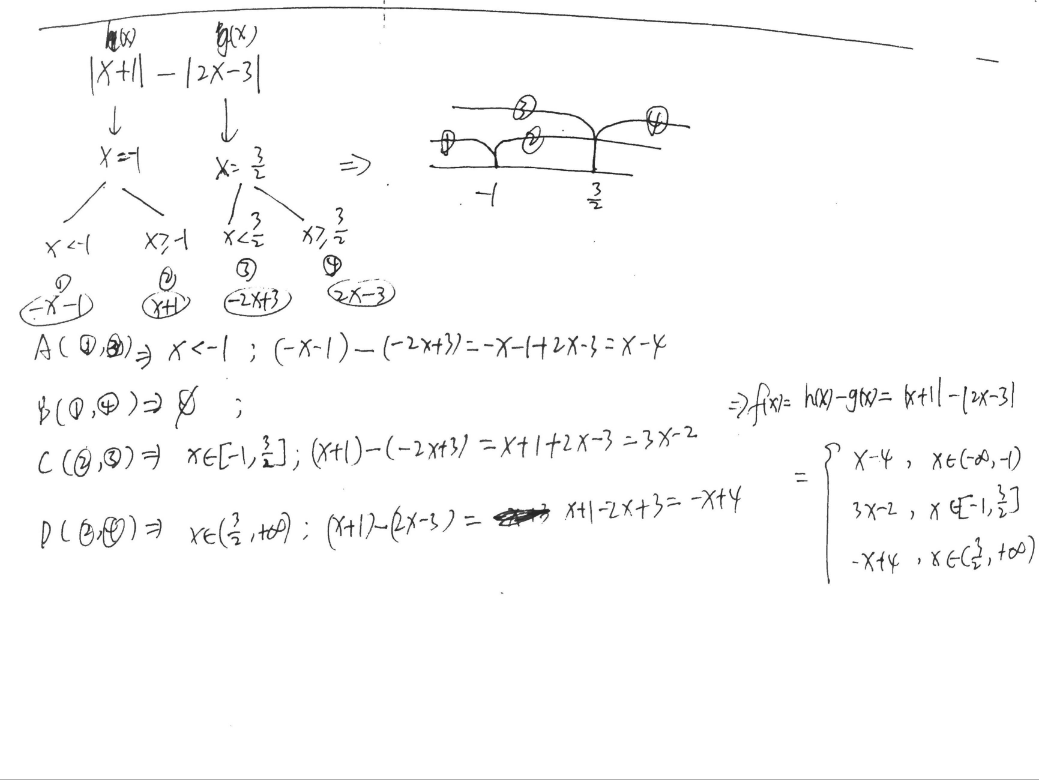 h(x) g(x)
|x+1| - |2x-3|
↓ ↓
x=-1 x=3/2 ⇒
① ③ ② ④
-1 3/2
x<-1 x≥-1 x<3/2 x≥3/2
① ② ③ ④
-x-1 x+1 -2x+3 2x-3
A(①,③)⇒ x<-1 ; (-x-1)-(-2x+3)=-x-1+2x-3=x-4
B(①,④)⇒ ∅ ;
C(②,③)⇒ x∈[-1,3/2]; (x+1)-(-2x+3)=x+1+2x-3=3x-2
D(②,④)⇒ x∈(3/2,+∞); (x+1)-(2x-3)= x+1-2x+3=-x+4
⇒f(x)=h(x)-g(x)=|x+1|-|2x-3|
= { x-4 , x∈(-∞,-1)
3x-2 , x∈[-1,3/2]
-x+4 , x∈(3/2,+∞)